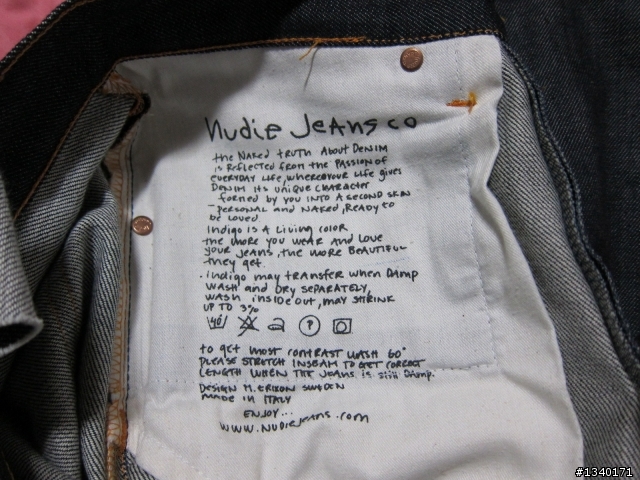 nudie Jeans co
the NAKED tRUtH About DENIM
is REflECtED fROM the PASSION of
EVERYDAY LifE, WHEREYOUR LifE gives
DENIM its UNIQUE CHARACtER
formed by you INTO A SECOND SKIN
- PERSONAL AND NAKED, READY to
be loved
Indigo is A Living color
the more you wear and Love
your JEANS, the more BEAUTIFUL
they get.
- Indigo may transfer when Damp
WASH and DRY SEPARATELY,
WASH inside out, MAY SHRINK
UP TO 3%
40
to get most contrast wash 60°
PLEASE STRETCH INSEAM TO GET CORRECT
LENGTH WHEN THE JEANS is still Damp.
DESIGN M. ERIXON SWEDEN
made in ITALY
ENJOY...
www.NUDIEJEANS.com
#1340171